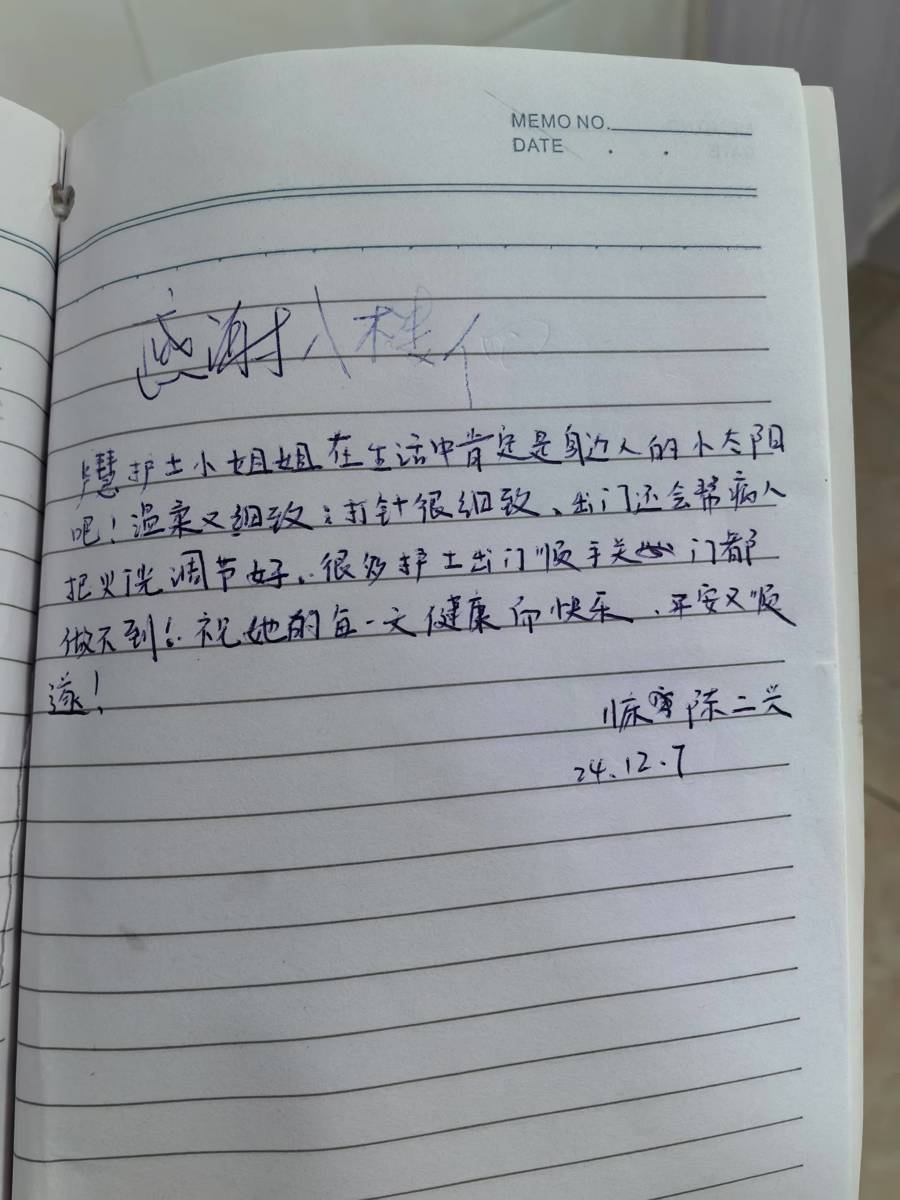 MEMO NO.
DATE . .
感谢八楼们
慧护士小姐姐在生活中肯定是身边人的小太阳
吧！温柔又细致；打针很细致、出门还会帮病人
把灯光调节好．很多护士出门顺手关门都
做不到！祝她的每一天健康而快乐、平安又顺
遂！
临床 陈二兴
24.12.7